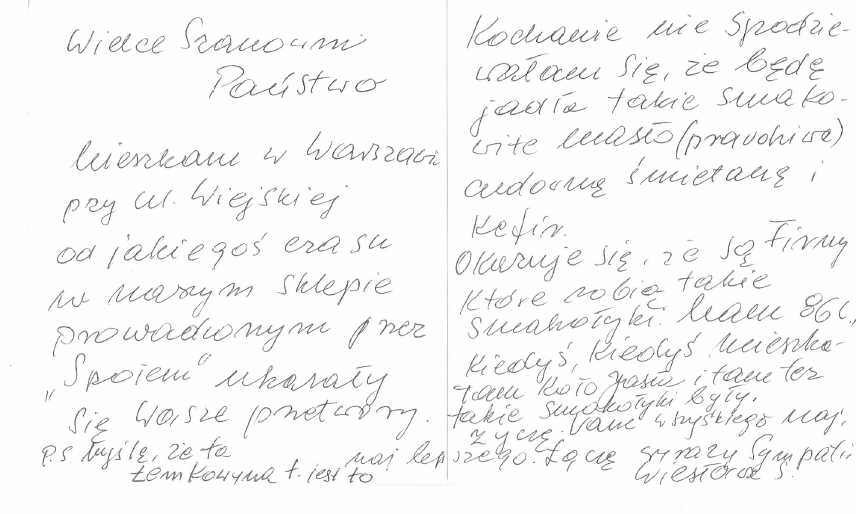 Wielce Szanowni
Państwo
Mieszkam w Warszawie
przy ul. Wiejskiej
od jakiegoś czasu
w naszym sklepie
prowadzonym przez
"Społem" ukazały
się Wasze przetwory.
P.S. Myślę, że ta
Łemkowyna t. jest to
Kochanie nie spodzie-
wałam się, że będę
jadła takie smako-
wite masło (prawdziwe)
cudowną śmietanę i
Kefir.
Okazuje się, że są Firmy
które robią takie
smakołyki. Mam 86 l.,
Kiedyś, Kiedyś mieszka-
łam koło Jasła i tam też
takie smakołyki były.
Życzę Wam wszystkiego naj,
naj lepszego. Łączę wyrazy Sympatii
Wiesława S.